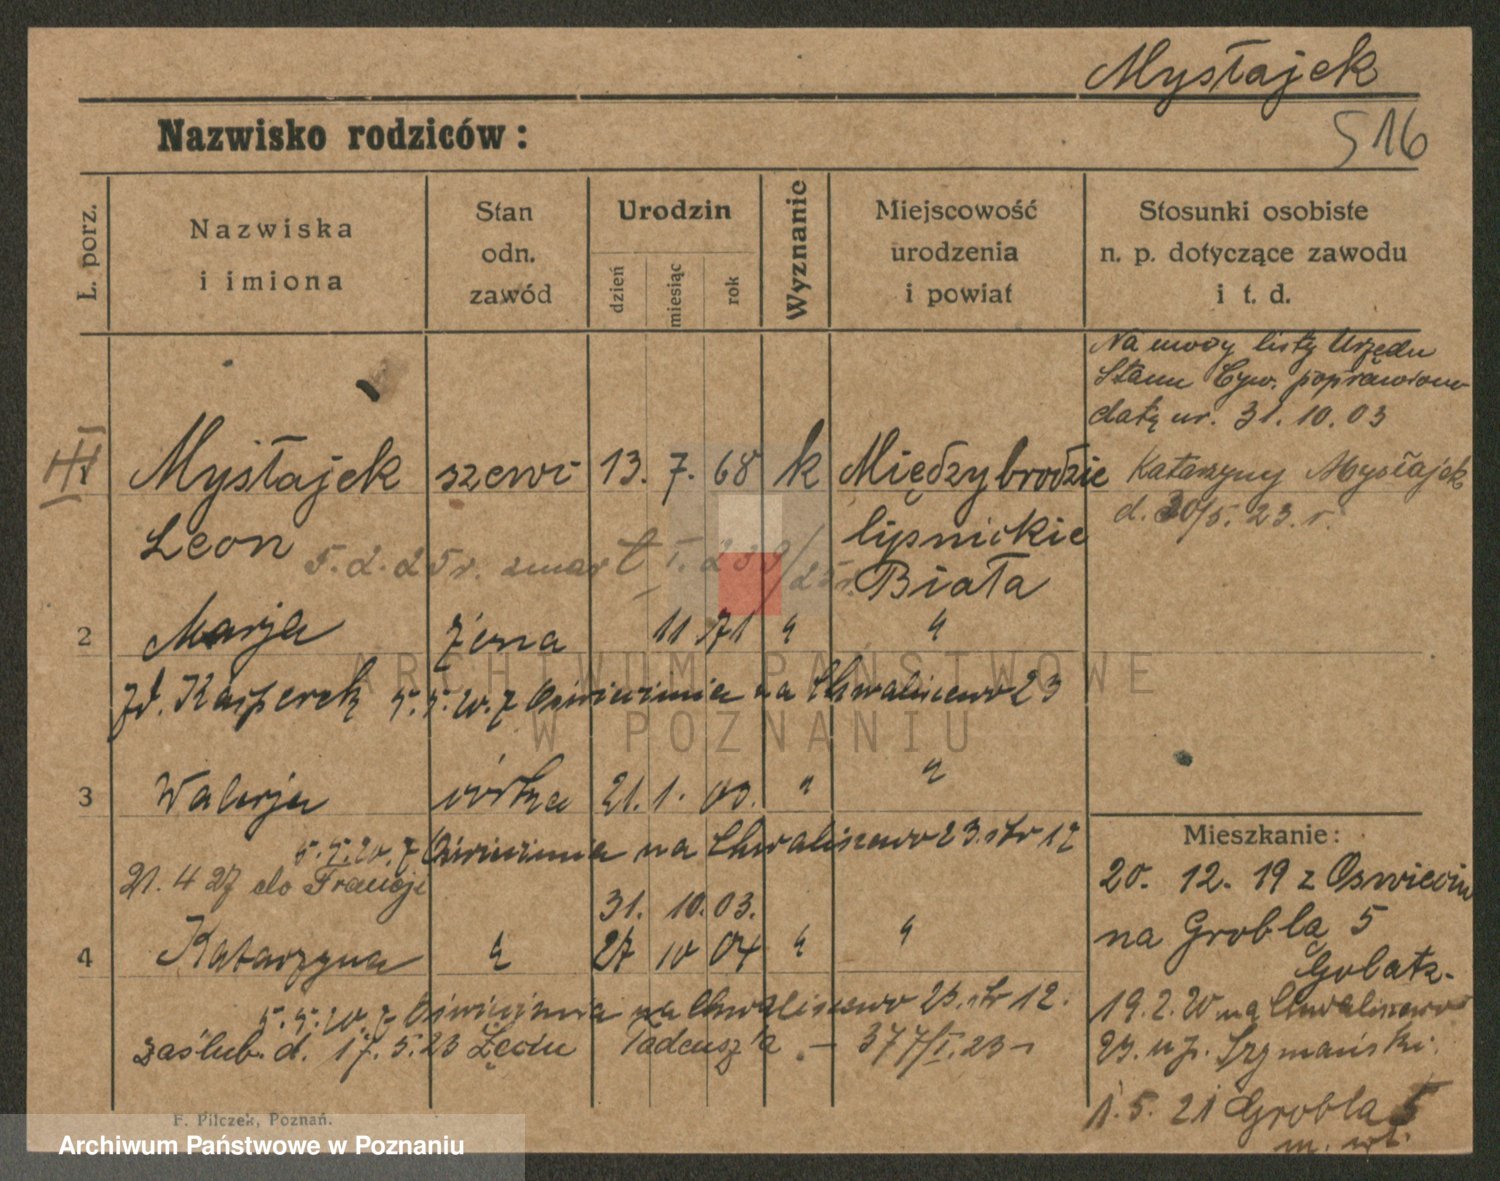 Mysłajek
516
Nazwisko rodziców:
L. porz.
Nazwiska
i imiona
Stan
odn.
zawód
Urodzin
dzień
miesiąc
rok
Wyznanie
Miejscowość
urodzenia
i powiat
Stosunki osobiste
n. p. dotyczące zawodu
i t. d.
Na mocy listy Urzędu
Stanu Cyw. poprawiono
datę ur. 31.10.03
Katarzyny Mysłajek
d. 30/5.23.r.
Mysłajek szewc 13. 7. 68 k Międzybrodzie
Leon lipnickie
5.2.25r. zmarł
Biała
2 Marja żona 11 71 " "
Kasperek 5.5.20. z Oświęcimia na Chwaliszewo 23
3 Walerja córka 21. 1. 00. " "
5.5.20. z Oświęcimia na Chwaliszewo 23. str 12
21.4 27 do Francji
31. 10. 03.
4 Katarzyna " 27 10 04 " "
5.5.20. z Oświęcimia na Chwaliszewo 23. str 12.
zaślub. d. 17.5.23 Tadeusz'a . – 377/I.23 –
Mieszkanie:
20. 12. 19 z Oswiecim
na Grobla 5
19.2.20 na Chwaliszewo
23. u p. Szymański.
1.5.21 Grobla 5
F. Pilczek, Poznań.
ARCHIWUM PAŃSTWOWE
W POZNANIU
Archiwum Państwowe w Poznaniu